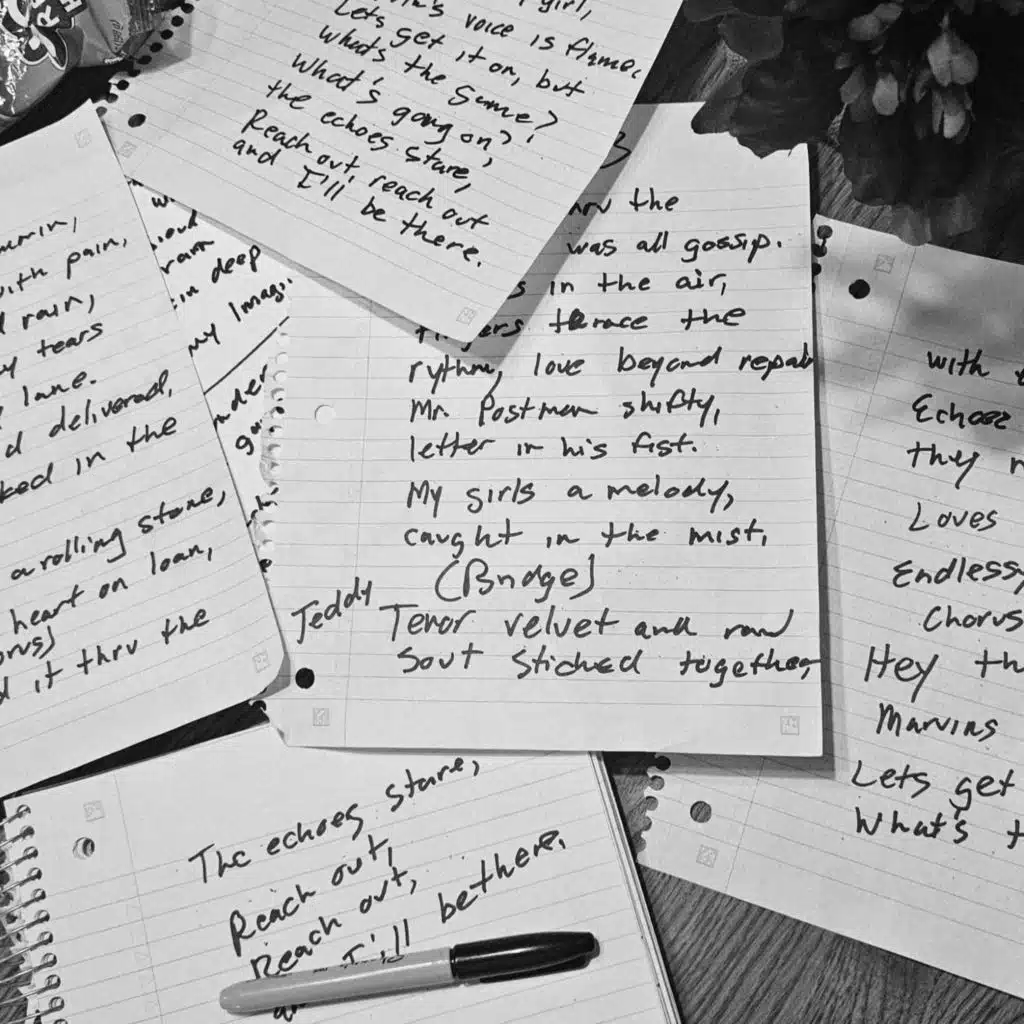 girl,
voice is flame.
Lets get it on, but
whats the same?
What's going on?,
the echoes stare,
Reach out, reach out
and I'll be there.
with pain,
rain,
tears
lane.
delivered,
in the
a rolling stone,
heart on loan,
it thru the
in deep
my
3
the
was all gossip.
in the air,
the
rythm, love beyond repair
Mr. Postman shifty,
letter in his fist.
My girls a melody,
caught in the mist.
(Bridge)
Teddy
Tenor velvet and raw
sout stiched together,
with
Echoes
they
Loves
Endless
Chorus
Hey
Marvins
Lets get
What's
The echoes stare,
Reach out,
Reach out,
I'll be there.